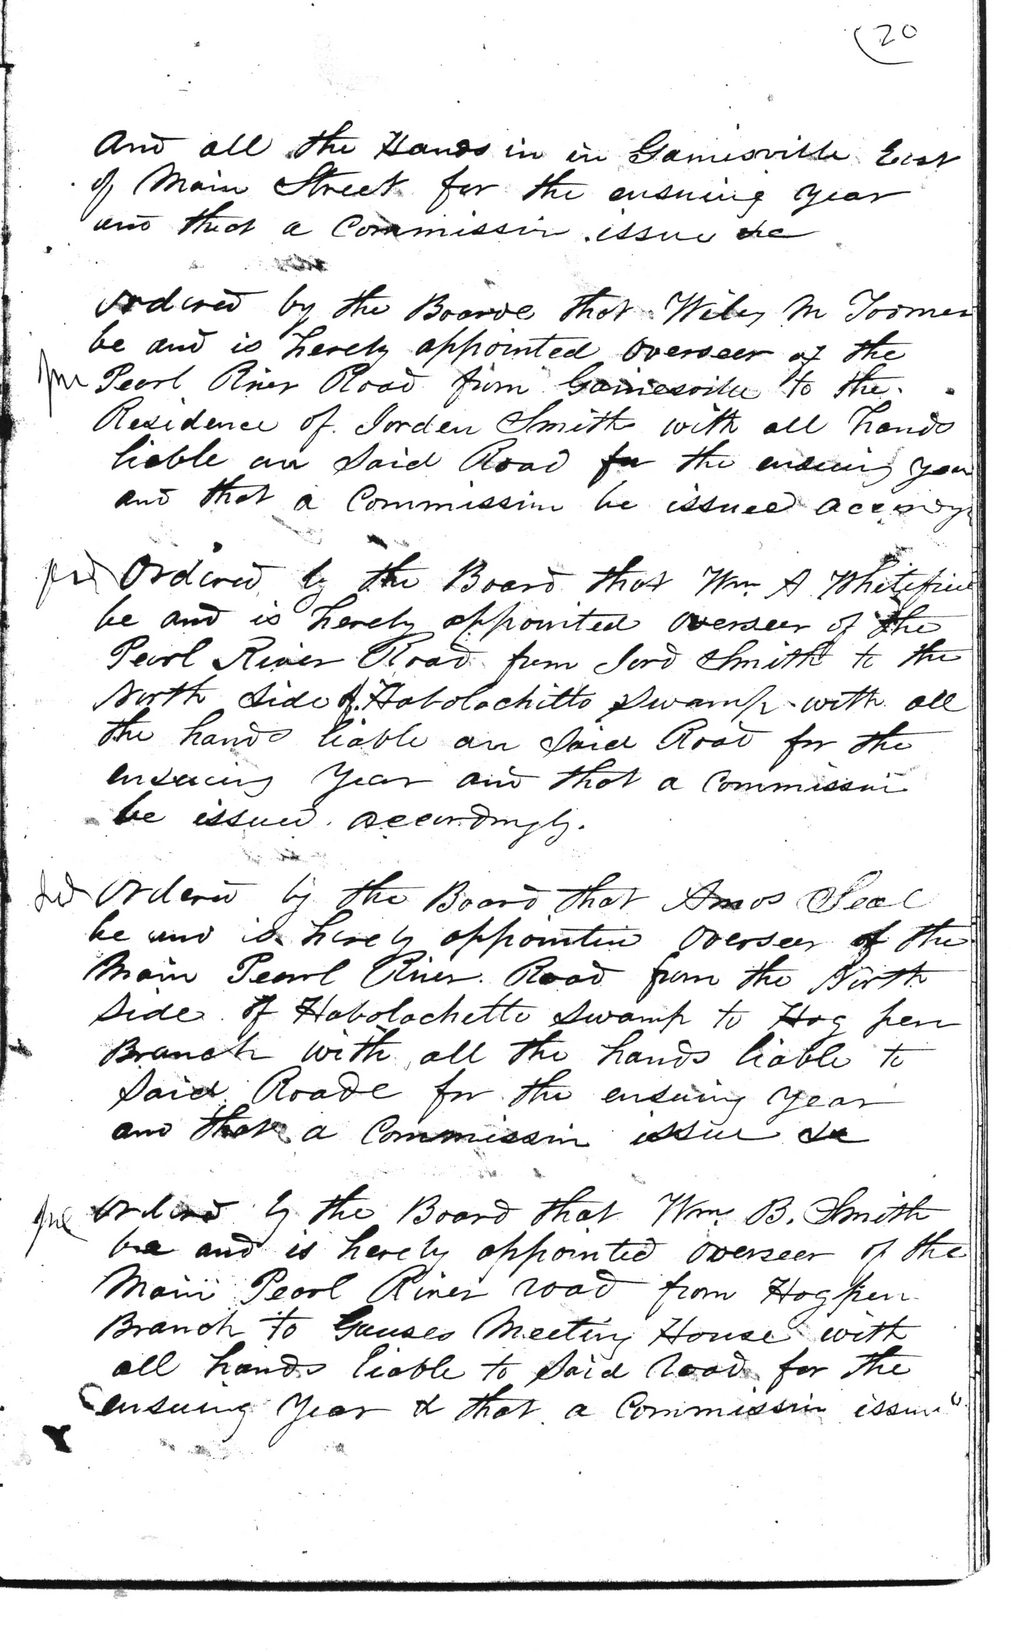 20
And all the Hands in in Gainesville East
of Main Street for the ensuing year
and that a Commission issue &c
Ordered by the Boarde that Wiley M Toomer
be and is hereby appointed overseer of the
Pearl River Road from Gainesville to the
Residence of Jorden Smith with all hands
liable on Said Road for the ensuing year
and that a Commission be issued
Ordered by the Board that Wm A Whitefield
be and is hereby appointed overseer of the
Pearl River Road from Jord Smith to the
North Side of Habolachitto Swamp with all
the hands liable on Said Road for the
ensuing year and that a Commission
be issued accordingly.
Ordered by the Board that Amos Seal
be and is hereby appointed overseer of the
Main Pearl River Road from the North
Side of Habolachetto Swamp to Hog pen
Branch with all the hands liable to
Said Roade for the ensuing year
and that a Commission issue &c
Ordered by the Board that Wm B. Smith
be and is hereby appointed overseer of the
Main Pearl River road from Hogpen
Branch to Gauses Meeting House with
all hands liable to Said road for the
ensuing year & that a Commission issue